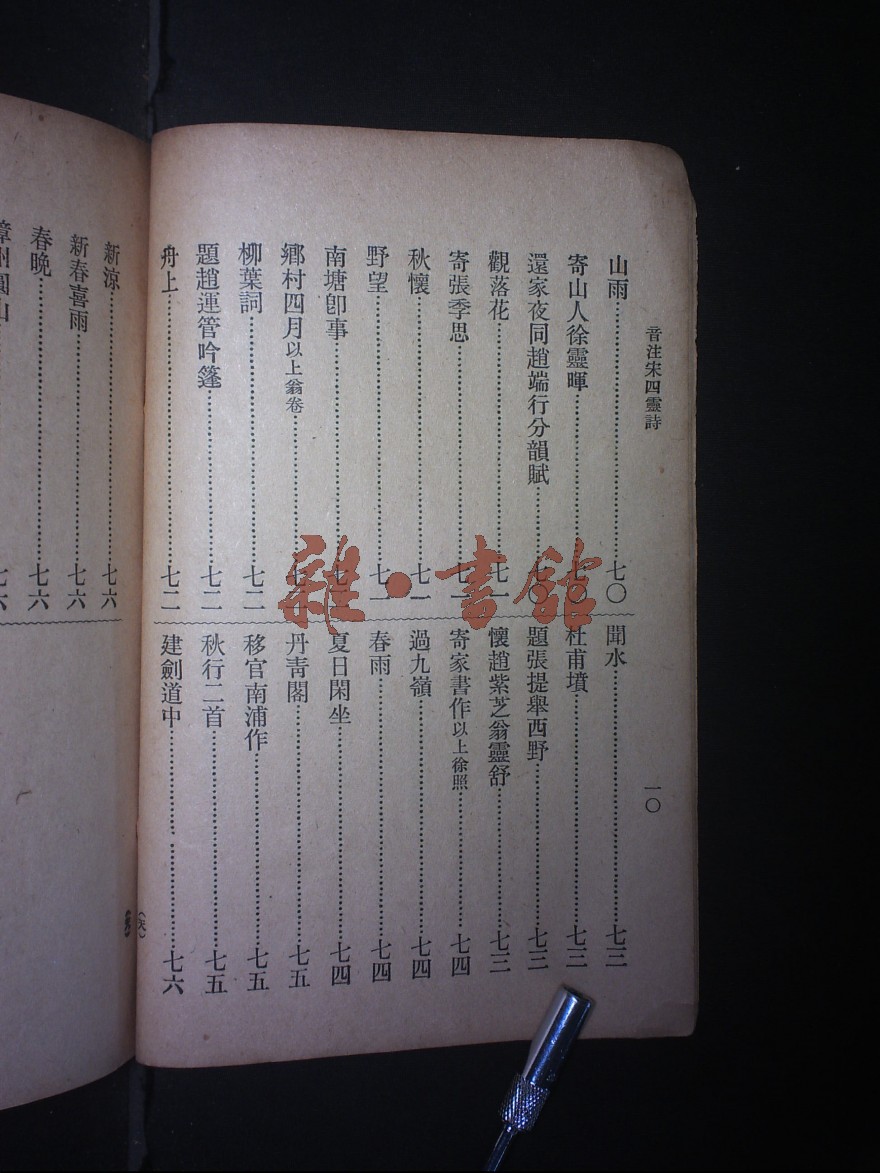 音注宋四靈詩
一〇
山雨……七〇
寄山人徐靈暉……七〇
還家夜同趙端行分韻賦……七〇
觀落花……七一
寄張季思……七一
秋懷……七一
野望……七一
南塘卽事……七二
鄉村四月以上翁卷……七二
柳葉詞……七二
題趙運管吟篷……七二
舟上……七二
聞水……七三
杜甫墳……七三
題張提舉西野……七三
懷趙紫芝翁靈舒……七三
寄家書作以上徐照……七四
過九嶺……七四
春雨……七四
夏日閑坐……七四
丹靑閣……七五
移官南浦作……七五
秋行二首……七五
建劍道中……七六
新涼……七六
新春喜雨……七六
春晚……七六
漳州圓山……七六
雜·書館